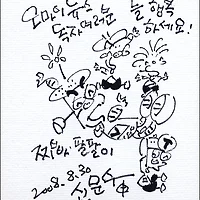 오마이뉴스 늘 행복
독자여러분 하세요!
찌빠 팔팔이
2008. 8. 30
신문수